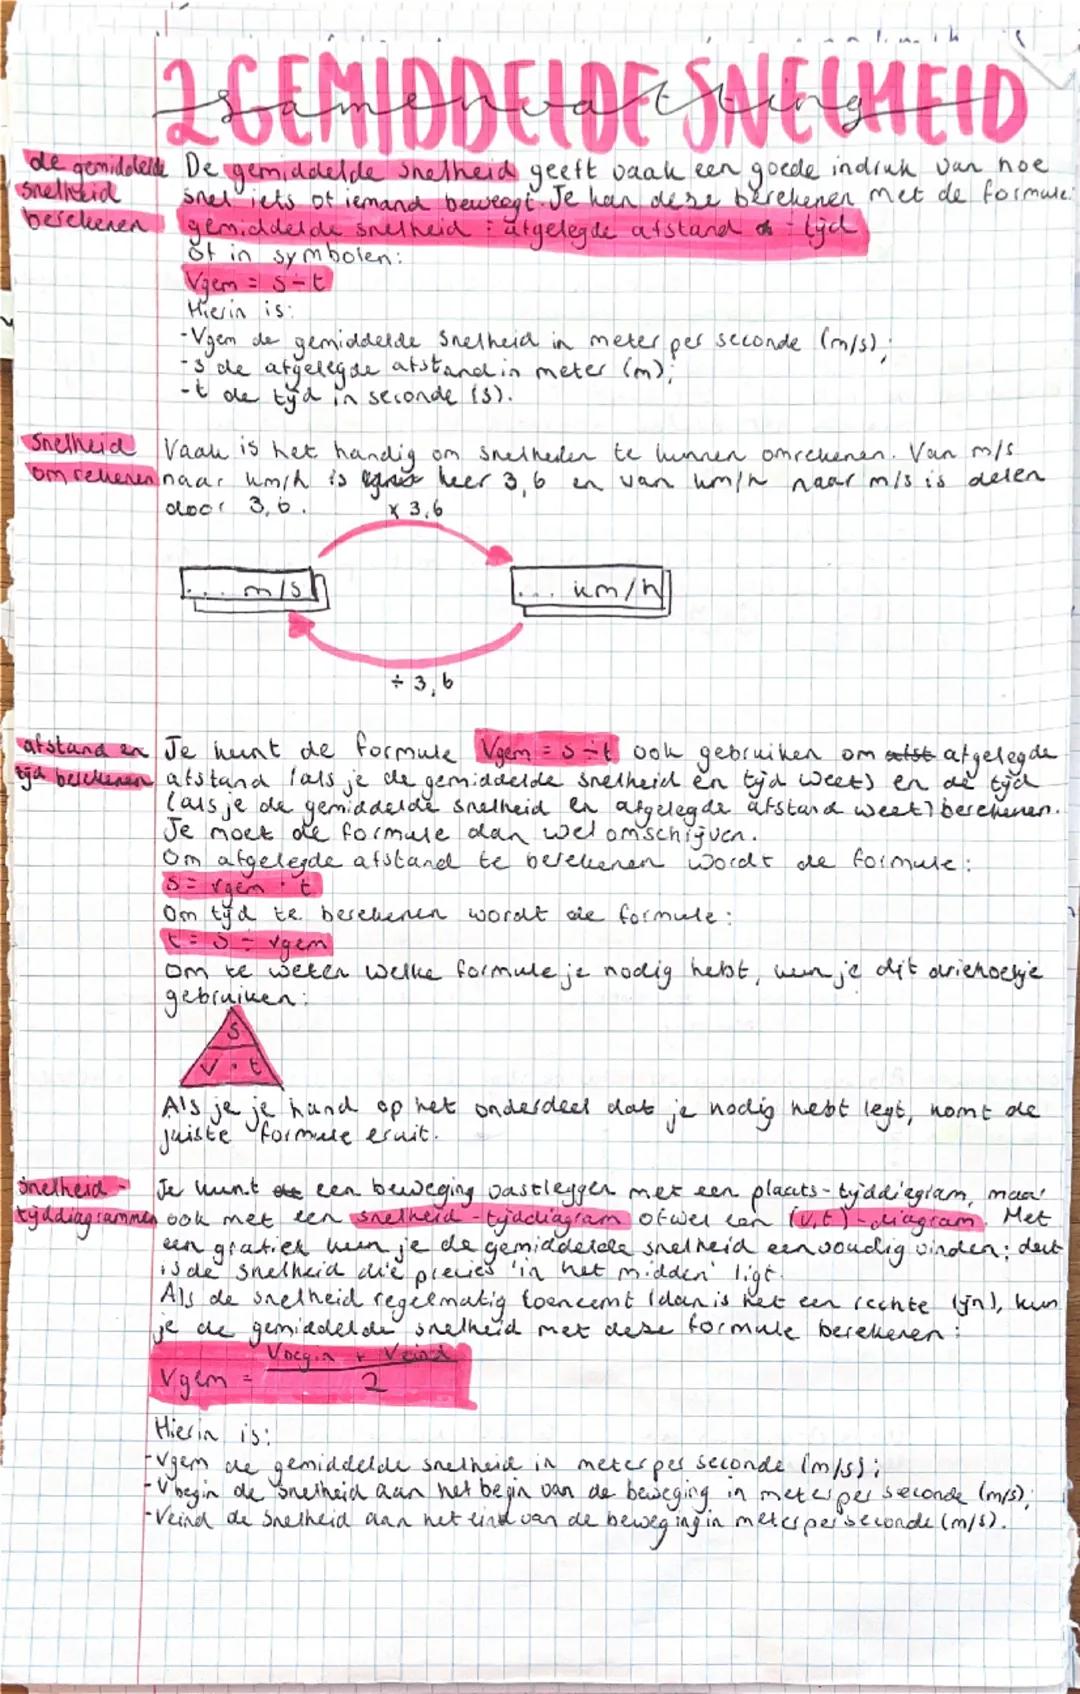 2 GEMIDDELDE SNELHEID
samenvatting
de gemiddelde snelheid berekenen
De gemiddelde snelheid geeft vaak een goede indruk van hoe
snel iets of iemand beweegt. Je kan deze berekenen met de formule:
gemiddelde snelheid = afgelegde afstand ÷ tijd
Of in symbolen:
Vgem = s ÷ t
Hierin is:
-Vgem de gemiddelde snelheid in meter per seconde (m/s);
-s de afgelegde afstand in meter (m);
-t de tijd in seconde (s).
snelheid omrekenen
Vaak is het handig om snelheden te kunnen omrekenen. Van m/s
naar km/h is keer 3,6 en van km/h naar m/s is delen
door 3,6.
x 3,6
... m/s
... km/h
÷ 3,6
afstand en tijd berekenen
Je kunt de formule Vgem = s ÷ t ook gebruiken om afst afgelegde
afstand (als je de gemiddelde snelheid en tijd weet) en de tijd
(als je de gemiddelde snelheid en afgelegde afstand weet) berekenen.
Je moet de formule dan wel omschrijven.
Om afgelegde afstand te berekenen wordt de formule:
s = vgem · t
Om tijd te berekenen wordt de formule:
t = s ÷ vgem
Om te weten welke formule je nodig hebt, kun je dit driehoekje
gebruiken:
s
v · t
Als je je hand op het onderdeel dat je nodig hebt legt, komt de
juiste formule eruit.
snelheid-tijddiagrammen
Je kunt een beweging vastleggen met een plaats-tijddiagram, maar
ook met een snelheid-tijddiagram ofwel een (v,t)-diagram. Met
een grafiek kun je de gemiddelde snelheid eenvoudig vinden: dat
is de snelheid die precies 'in het midden' ligt.
Als de snelheid regelmatig toeneemt (dan is het een rechte lijn), kun
je de gemiddelde snelheid met deze formule berekenen:
Vgem = Vbegin + Veind
2
Hierin is:
-Vgem de gemiddelde snelheid in meter per seconde (m/s);
-Vbegin de snelheid aan het begin van de beweging in meter per seconde (m/s);
-Veind de snelheid aan het eind van de beweging in meter per seconde (m/s).